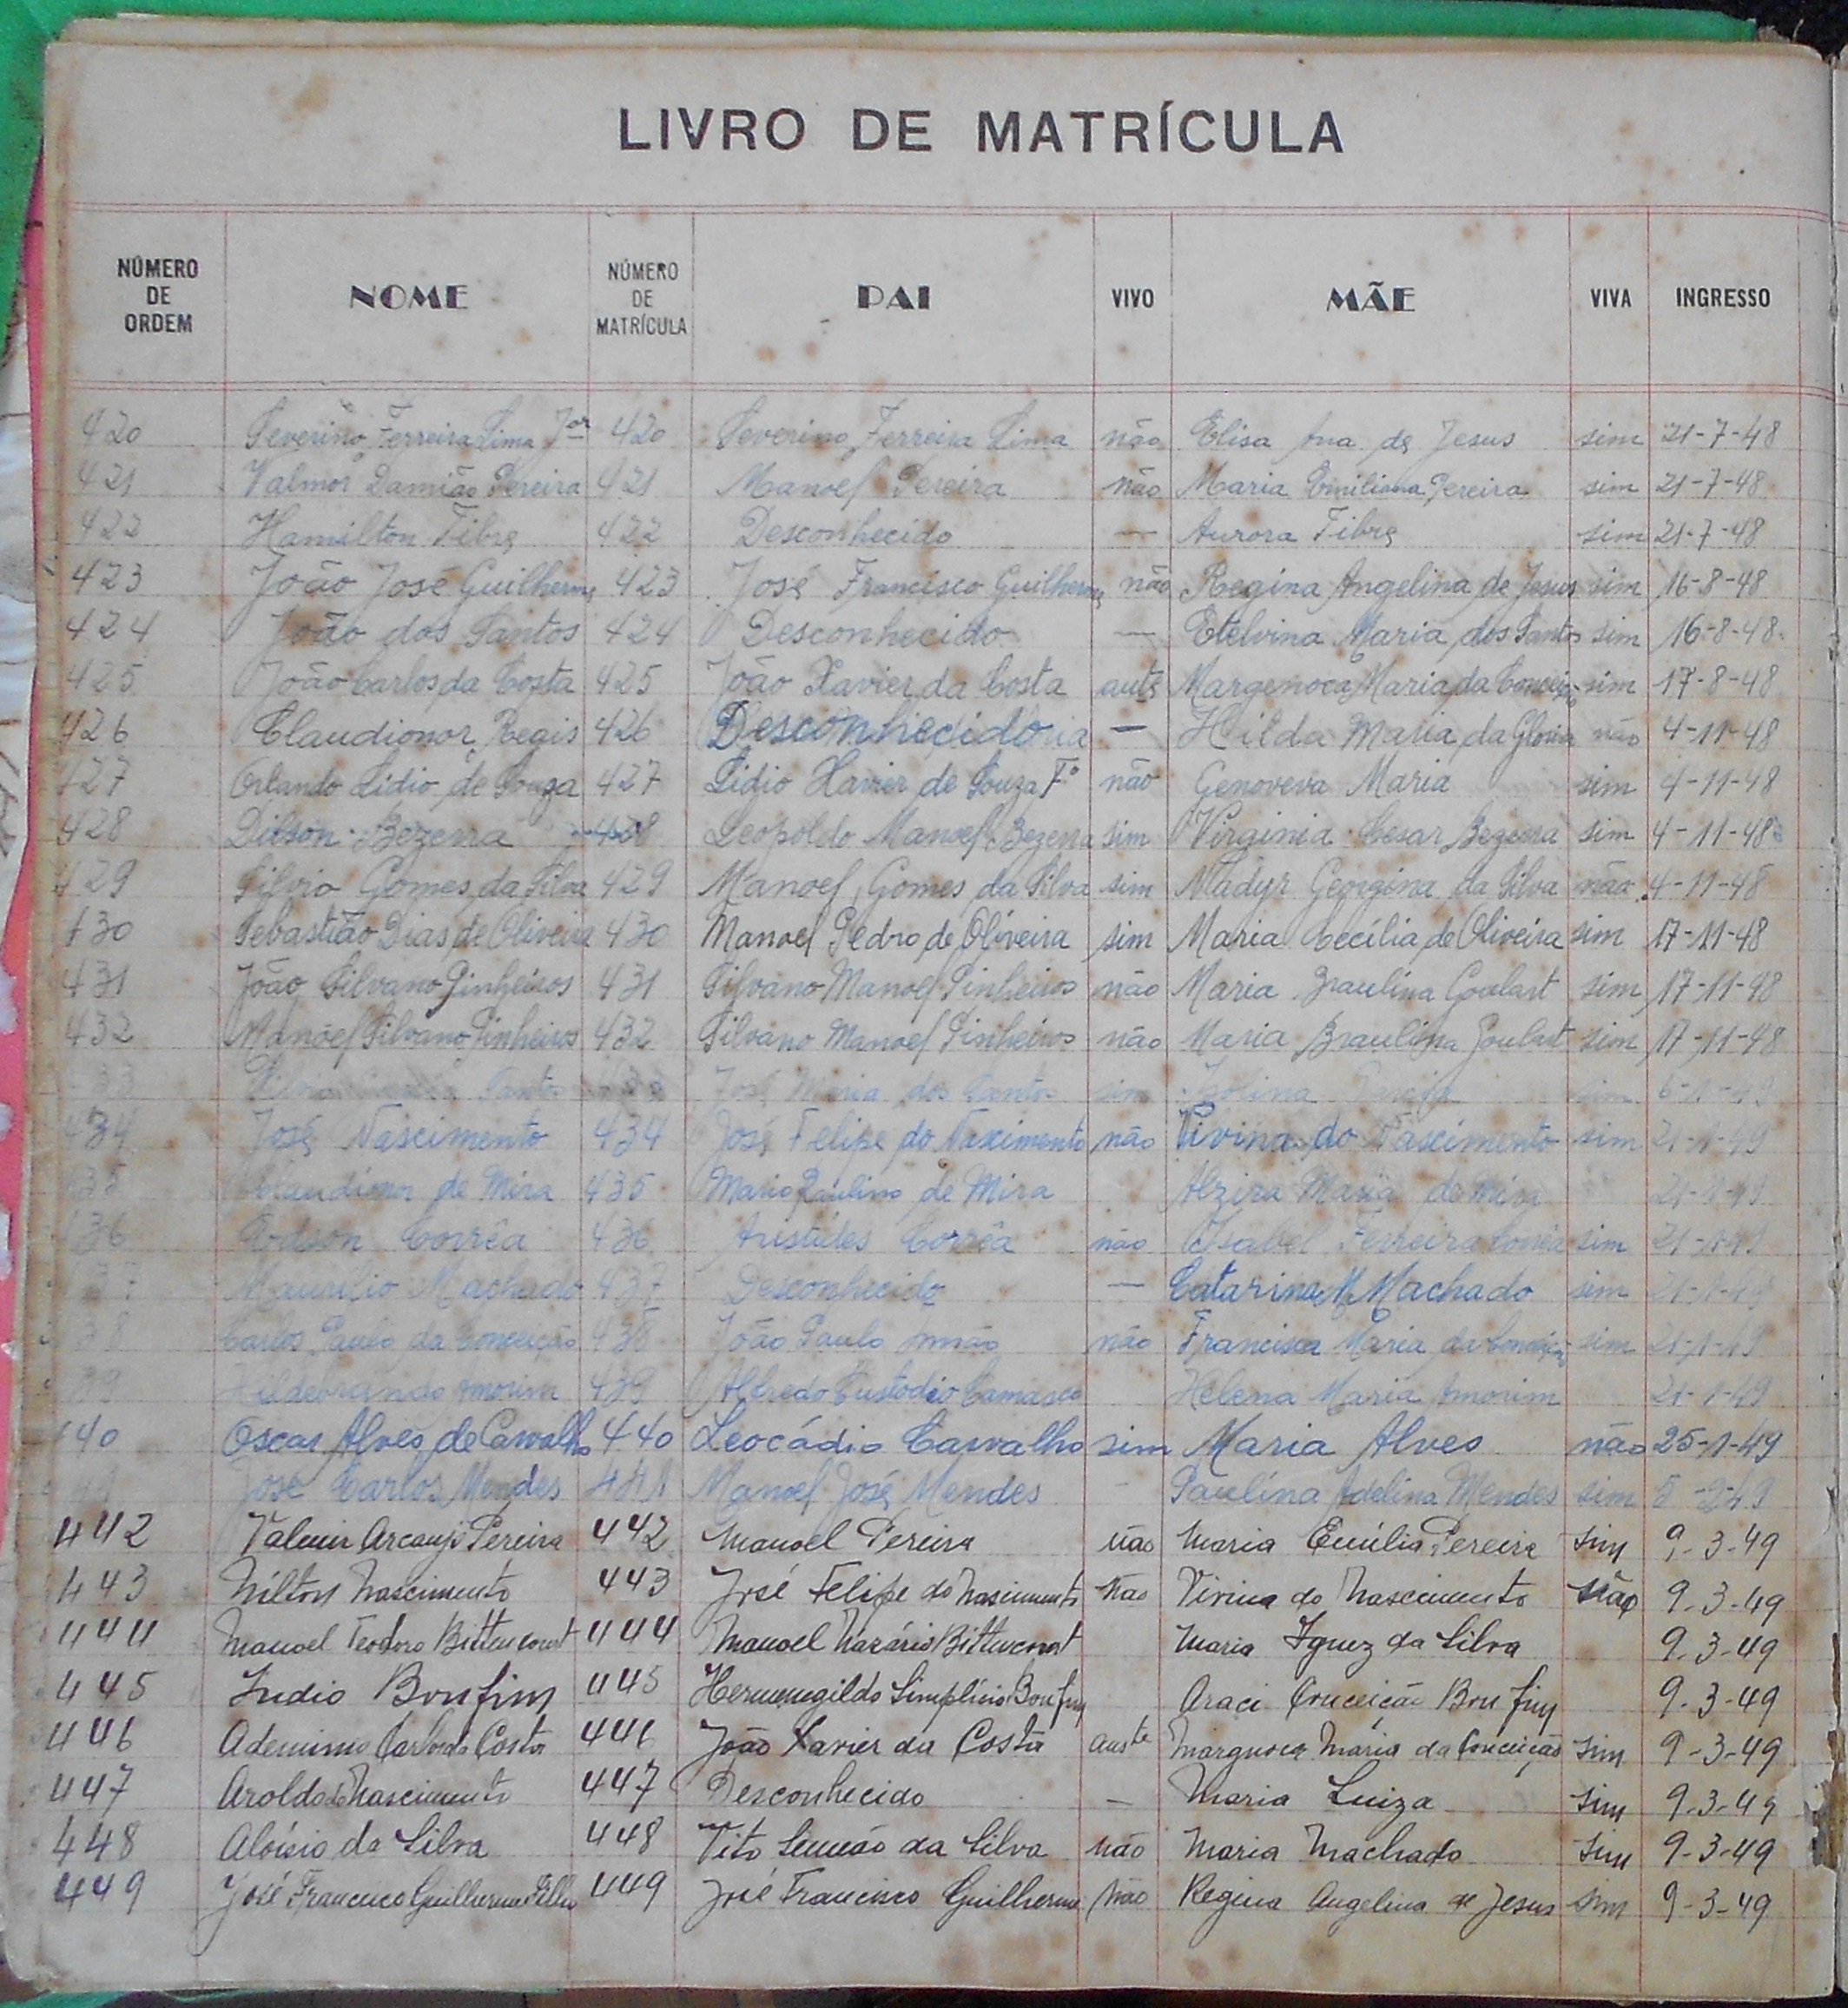 LIVRO DE MATRÍCULA
NÚMERO DE ORDEM NOME NÚMERO DE MATRÍCULA PAI VIVO MÃE VIVA INGRESSO
420 Severino Ferreira Lima Jor 420 Severino Ferreira Lima não Elisa Ana de Jesus sim 21-7-48
421 Valmor Damião Pereira 421 Manoel Pereira não Maria Emiliana Pereira sim 21-7-48
422 Hamilton Fibra 422 Desconhecido — Aurora Fibra sim 21-7-48
423 João José Guilherme 423 José Francisco Guilherme não Regina Angelina de Jesus sim 16-8-48
424 João dos Santos 424 Desconhecido — Etelvina Maria dos Santos sim 16-8-48
425 João Carlos da Costa 425 João Xavier da Costa autе Margenoca Maria da Conceição sim 17-8-48
426 Claudionor Regis 426 Desconhecido — Hilda Maria da Gloria não 4-11-48
427 Orlando Lidio de Souza 427 Lidio Xavier de Souza Fº não Genoveva Maria sim 4-11-48
428 Dilson Bezerra 428 Leopoldo Manoel Bezerra sim Virginia Cesar Bezerra sim 4-11-48
429 Silvio Gomes da Silva 429 Manoel Gomes da Silva sim Nadyr Georgina da Silva não 4-11-48
430 Sebastião Dias de Oliveira 430 Manoel Pedro de Oliveira sim Maria Cecília de Oliveira sim 17-11-48
431 João Silvano Pinheiros 431 Silvano Manoel Pinheiros não Maria Braulina Goulart sim 17-11-48
432 Manoel Silvano Pinheiros 432 Silvano Manoel Pinheiros não Maria Braulina Goulart sim 17-11-48
Santos José Maria dos Santos sim Garcia sim
434 José Nascimento 434 José Felipe do Nascimento não Vivina do Nascimento sim 21-1-49
435 Claudionor de Mira 435 Mario Paulino de Mira Alzira Maria de Mira 21-1-49
436 Edson Corrêa 436 Aristides Corrêa não Isabel Ferreira Corrêa sim 21-1-49
437 Maurilio Machado 437 Desconhecido — Catarina M. Machado sim 21-1-49
438 Carlos Paulo da Conceição 438 João Paulo não Francisca Maria da Conceição sim 21-1-49
439 Hildebrando Amorim 439 Alfredo Custodio Camasco Helena Maria Amorim 21-1-49
440 Oscar Alves de Carvalho 440 Leocádio Carvalho sim Maria Alves não 25-1-49
441 José Carlos Mendes 441 Manoel José Mendes - Paulína Adelina Mendes sim 8-2-49
442 Valmir Arcanjo Pereira 442 Manoel Pereira não Maria Emília Pereira sim 9-3-49
443 Nilton Nascimento 443 José Felipe do Nascimento não Vivina do Nascimento não 9-3-49
444 Manoel Teodoro Bittencourt 444 Manoel Nazário Bittencourt Maria Ignez da Silva 9-3-49
445 Indio Bonfim 445 Hermenegildo Simplício Bonfim Araci Conceição Bonfim 9-3-49
446 Adenimo Carlos da Costa 446 João Xavier da Costa auste Margnoca Maria da Conceição sim 9-3-49
447 Aroldo do Nascimento 447 Desconhecido — Maria Luiza sim 9-3-49
448 Aloísio da Silva 448 Vito Simeão da Silva não Maria Machado sim 9-3-49
449 José Francisco Guilherme Filho 449 José Francisco Guilherme não Regina Angelina de Jesus sim 9-3-49